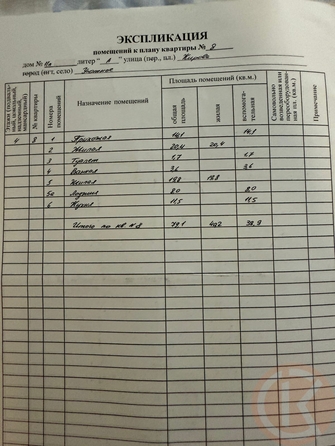 ЭКСПЛИКАЦИЯ
помещений к плану квартиры № 8
дом № литер "А" улица (пер., пл.) Кирова
город (пгт, село)
Этажи (подвальный, цокольный, мансардный) № квартиры Номера помещений Назначение помещений Площадь помещений (кв.м.) Самовольно возведенная или переоборудованная пл. (кв.м.) Примечание
общая площадь жилая вспомогательная
4 8 1 Прихожая 14,1 14,1
2 Жилая 20,4 20,4
3 Туалет 1,7 1,7
4 Ванная 3,6 3,6
5 Жилая 19,8 19,8
5а Лоджия 8,0 8,0
6 Кухня 11,5 11,5
Итого по кв. №8 79,1 40,2 38,9